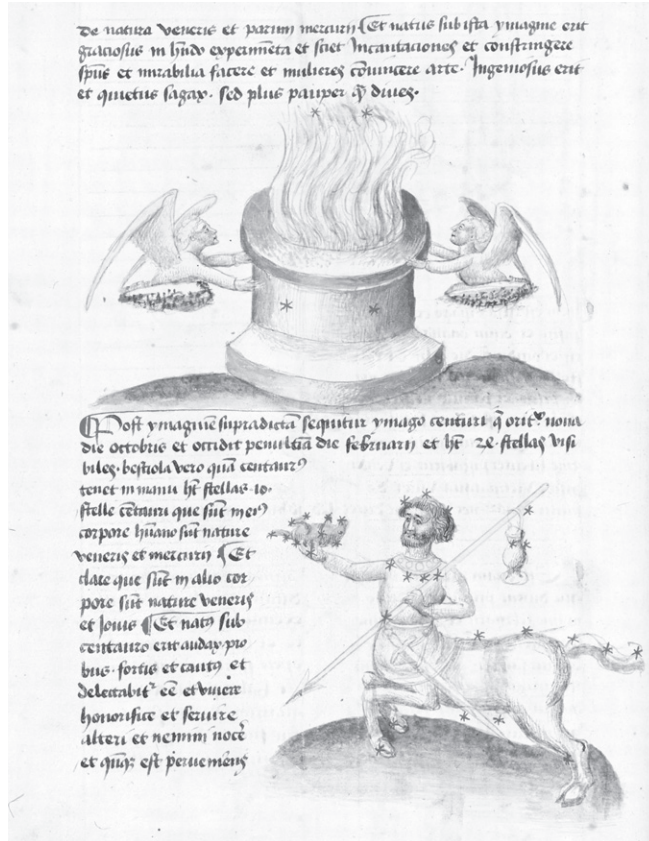 de natura veneris et parum mercurij Et natus sub ista ymagine erit
graciosus in hndo experimẽta et sciet Incantaciones et constringere
spũs et mirabilia facere et mulieres cõuincere arte. Ingeniosus erit
et quietus sagax. sed plus pauper q̃ diues.
Post ymaginẽ supradictã sequitur ymago centauri q̃ orit᷑ nona
die octobris et occidit penultĩa die februarij et ht̃ 28. stellas visi
biles. bestiola vero quã centaur9
tenet in manu ht̃ stellas 10.
stelle cẽtauri que sũt in ei9
corpore hũano sũt nature
veneris et mercurij Et
clare que sũt in alio cor
pore sũt nature veneris
et Jouis Et nat9 sub
centauro erit audax pro
bus. fortis et caut9 et
delectabit᷑ eẽ et viuere
honorifice et seruire
alteri et nemini nocẽ
et est